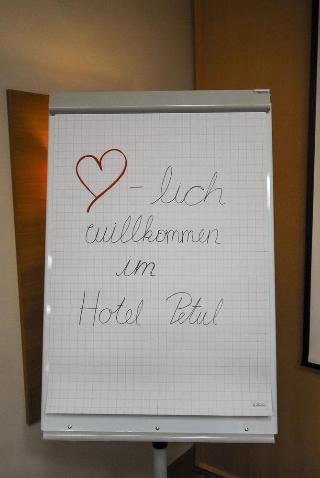 ♡-lich
willkommen
im
Hotel Petul